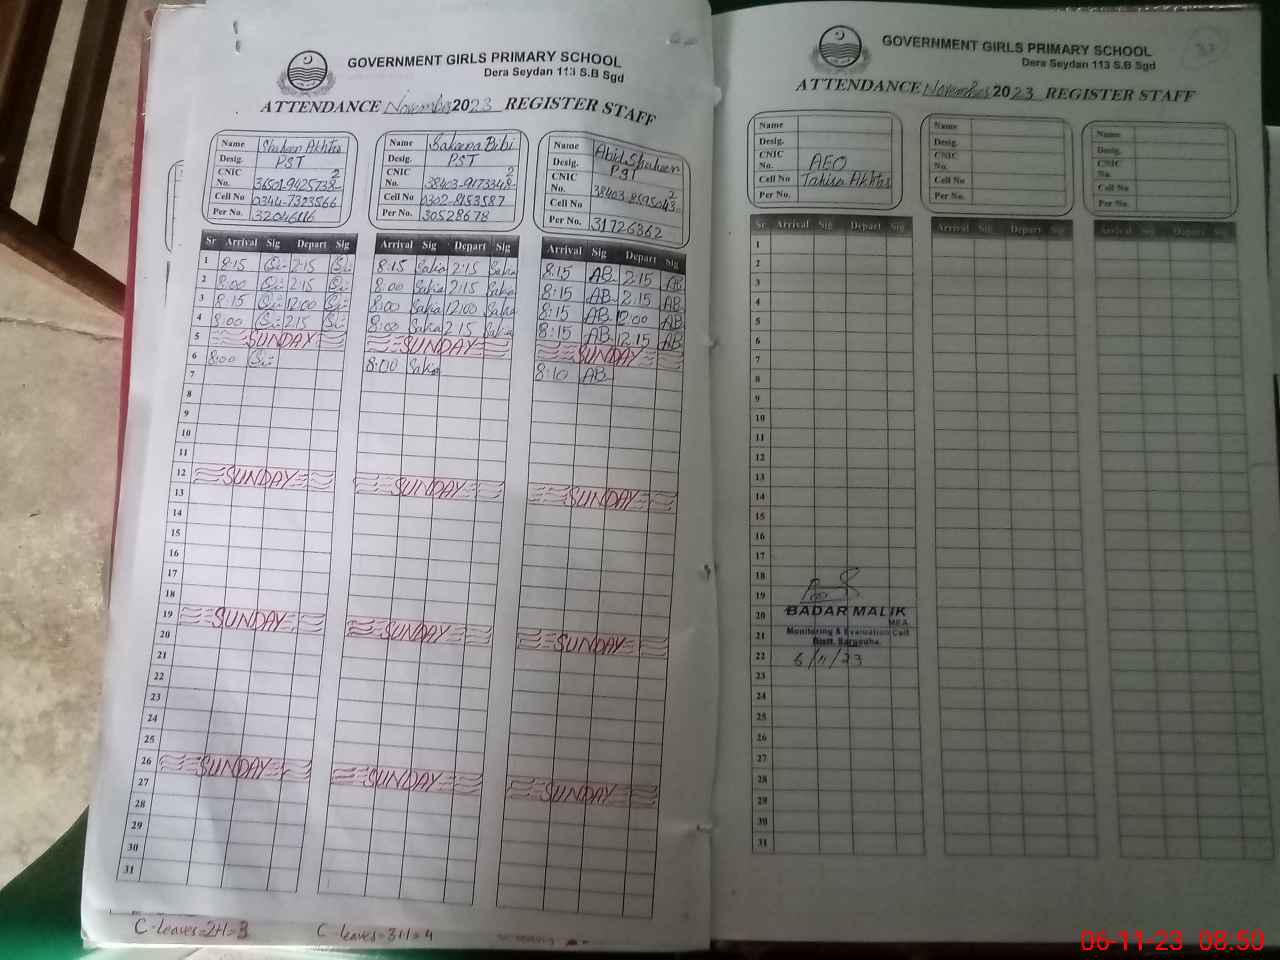 GOVERNMENT GIRLS PRIMARY SCHOOL
Dera Seydan 113 S.B Sgd
ATTENDANCE November 2023 REGISTER STAFF
Name Shaheen Akhtar
Desig. PST
CNIC 2
No. 36501-9425738-
Cell No 0344-7323566
Per No. 32046116
Name Sakeena Bibi
Desig. PST
CNIC 2
No. 38403-9173348-
Cell No 0302-8153587
Per No. 30528678
Name Abid Shaheen
Desig. PST
CNIC 2
No. 38403-8595043-
Cell No
Per No. 31726362
Sr Arrival Sig Depart Sig Arrival Sig Depart Sig Arrival Sig Depart Sig
1 8:15 2:15 8:15 Sakia 2:15 Sakia 8:15 AB 2:15 AB
2 8:00 2:15 8:00 Sakia 2:15 Sakia 8:15 AB 2:15 AB
3 8:15 12:00 8:00 Sakia 12:00 Sakia 8:15 AB 12:00 AB
4 8:00 2:15 8:00 Sakia 2:15 Sakia 8:15 AB 12:15 AB
5 SUNDAY SUNDAY SUNDAY
6 8:00 8:00 Sakia 8:10 AB
7
8
9
10
11
12 SUNDAY SUNDAY SUNDAY
13
14
15
16
17
18
19 SUNDAY SUNDAY SUNDAY
20
21
22
23
24
25
26 SUNDAY SUNDAY SUNDAY
27
28
29
30
31
C-leaves=2+1=3 C-leaves=3+1=4
37
GOVERNMENT GIRLS PRIMARY SCHOOL
Dera Seydan 113 S.B Sgd
ATTENDANCE November 2023 REGISTER STAFF
Name
Desig.
CNIC AEO
No.
Cell No Tahira Akhtar
Per No.
Name
Desig.
CNIC
No.
Cell No
Per No.
Name
Desig.
CNIC
No.
Cell No
Per No.
Sr Arrival Sig Depart Sig Arrival Sig Depart Sig Arrival Sig Depart Sig
1
2
3
4
5
6
7
8
9
10
11
12
13
14
15
16
17
18
19
20 BADAR MALIK
MEA
21 Monitoring & Evaluation Cell
Distt. Sargodha.
22 6/11/23
23
24
25
26
27
28
29
30
31
06-11-23 08:50